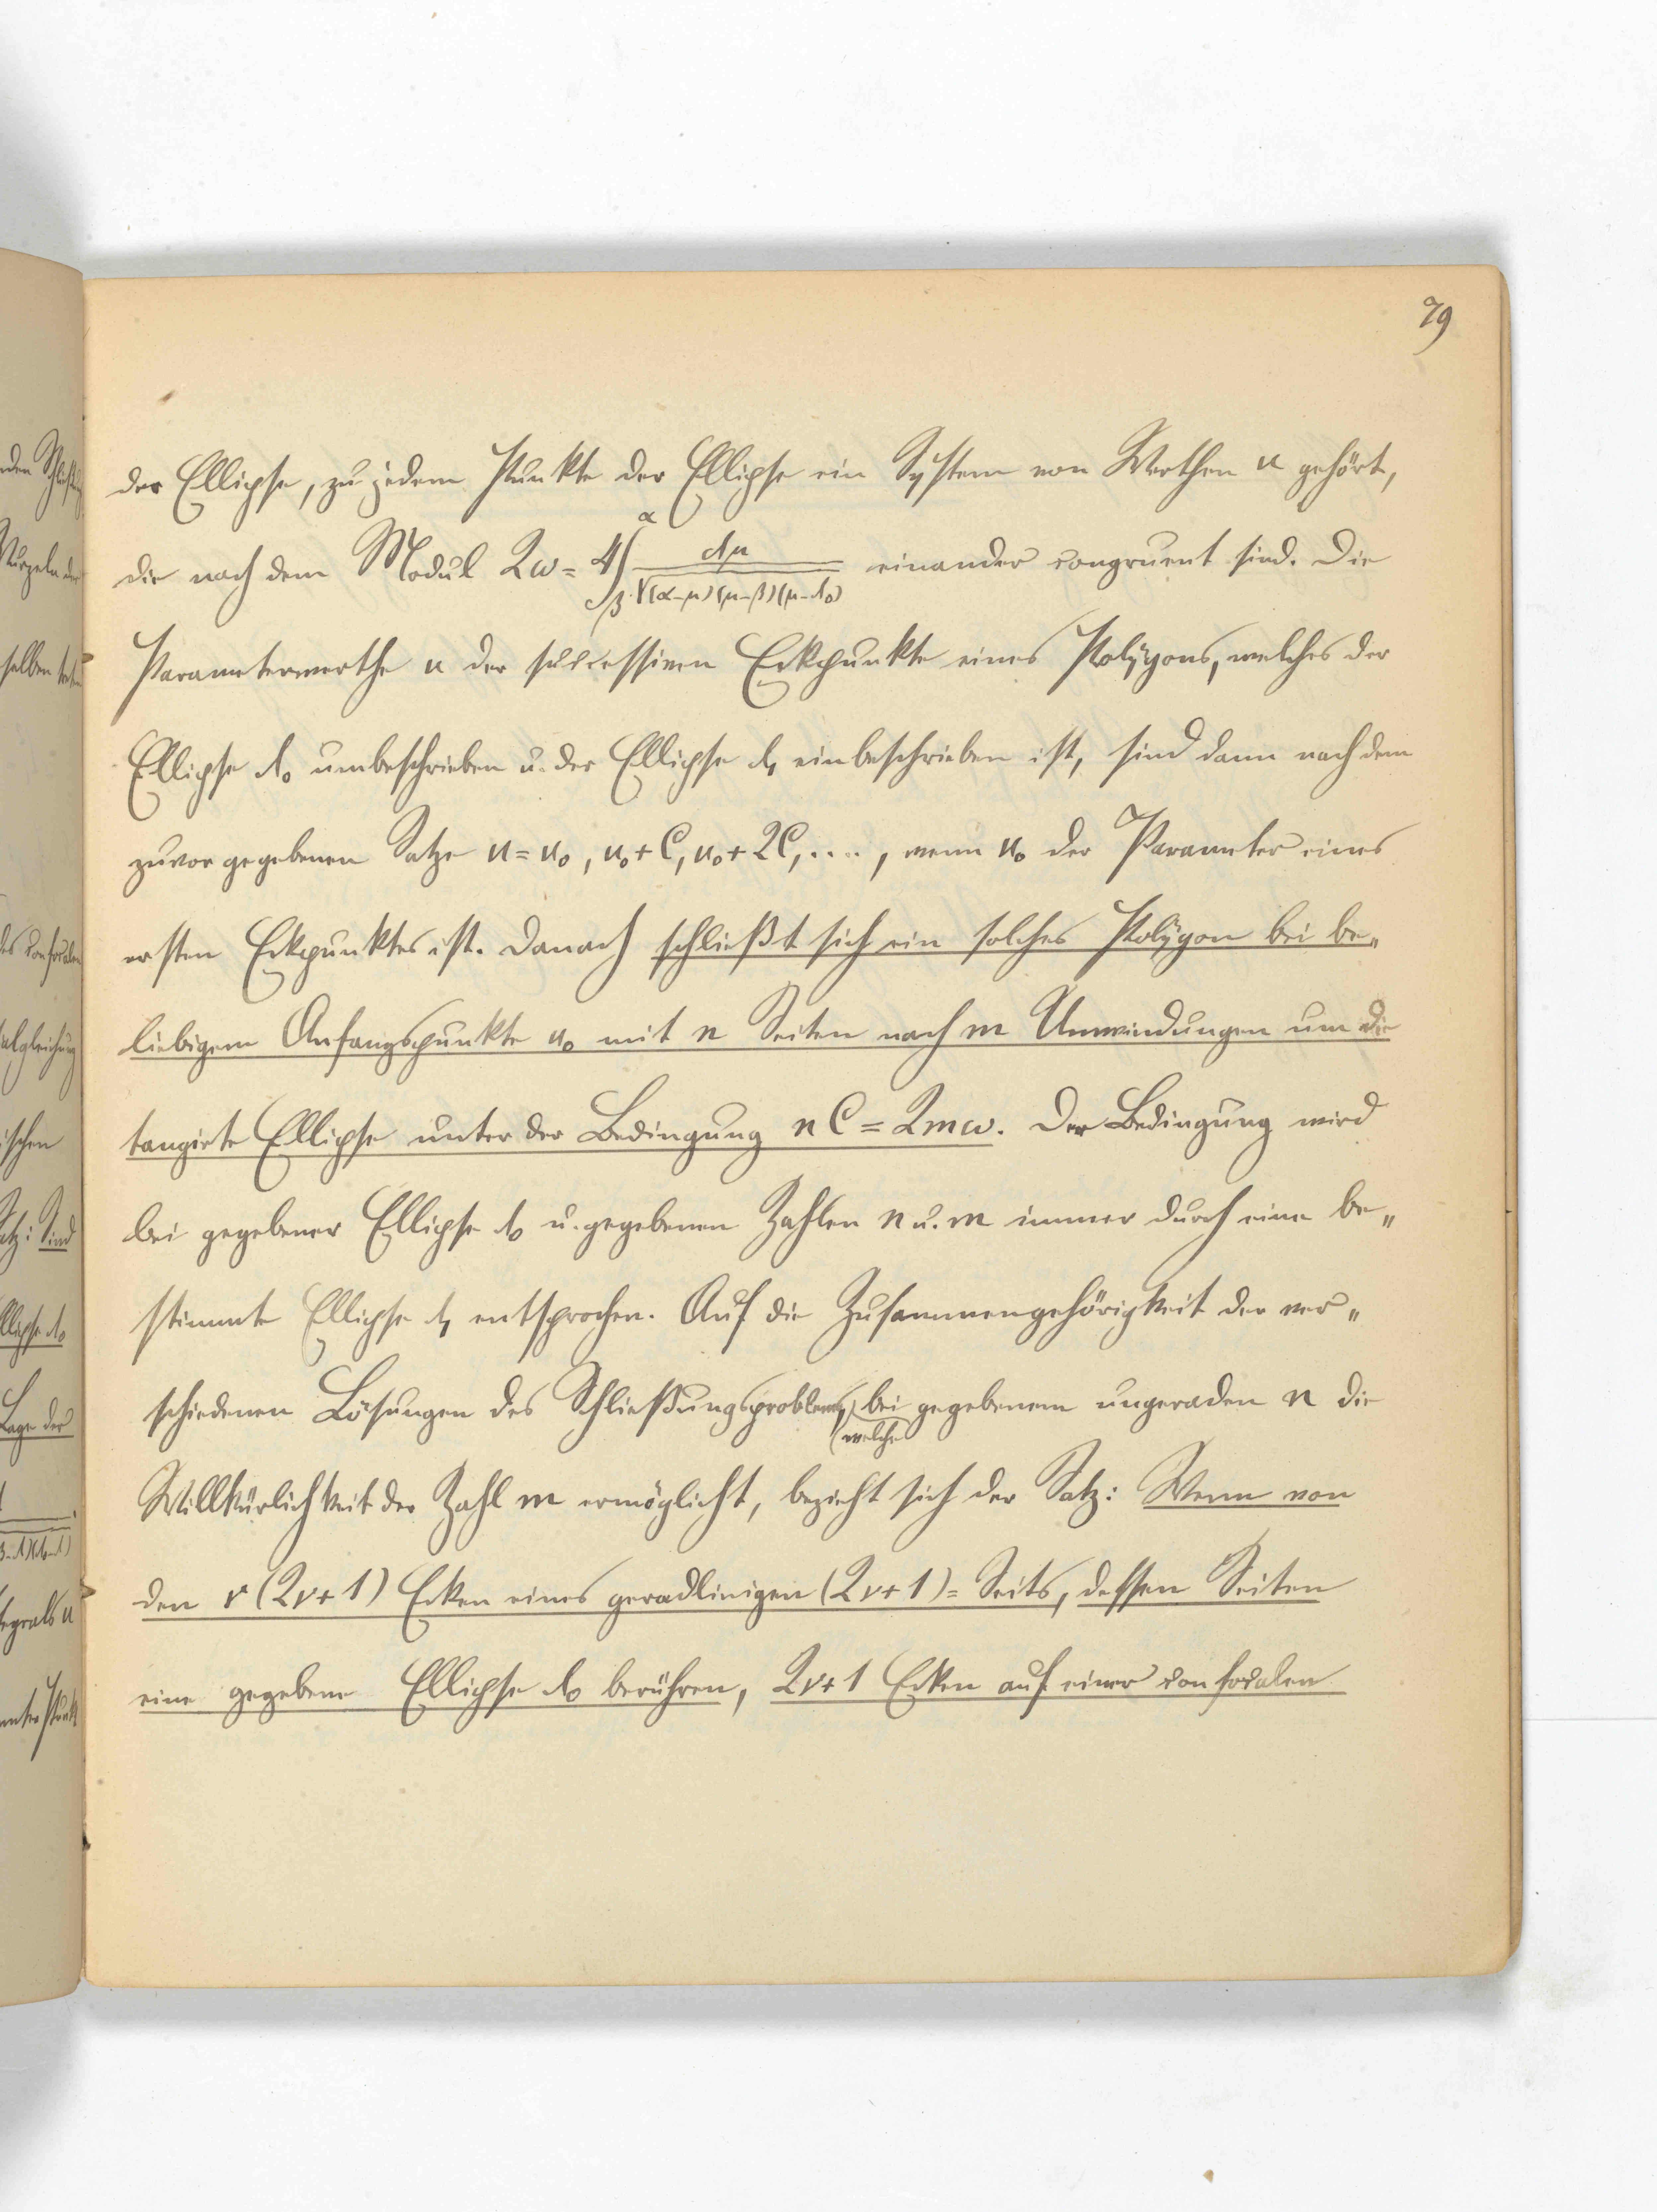 79
der Ellipse, zu jedem Punkte der Ellipse ein System von Werthen u gehört,
die nach dem Modul 2ω = 4∫_β^α dμ/√((α-μ)(μ-β)(μ-λ₀)) einander congruent sind. Die
Parameterwerthe u der successiven Eckpunkte eines Polygons, welches der
Ellipse λ₀ umbeschrieben u. der Ellipse λ₁ einbeschrieben ist, sind dann nach dem
zuvor gegebenen Satze u = u₀, u₀+C, u₀+2C, ...., wenn u₀ der Parameter eines
ersten Eckpunktes ist. Danach schließt sich ein solches Polygon bei be„
liebigem Anfangspunkte u₀ mit n Seiten nach m Umwindungen um die
tangirte Ellipse unter der Bedingung nC = 2mω. Der Bedingung wird
bei gegebener Ellipse λ₀ u. gegebenen Zahlen n u. m immer durch eine be„
stimmte Ellipse λ₁ entsprochen. Auf die Zusammengehörigkeit der ver„
schiedenen Lösungen des Schließungsproblems, bei gegebenem ungeraden n die
welche
Willkürlichkeit der Zahl m ermöglicht, bezieht sich der Satz: Wenn von
den ν(2ν+1) Ecken eines geradlinigen (2ν+1)=Seits, dessen Seiten
eine gegebene Ellipse λ₀ berühren, 2ν+1 Ecken auf einer confocalen